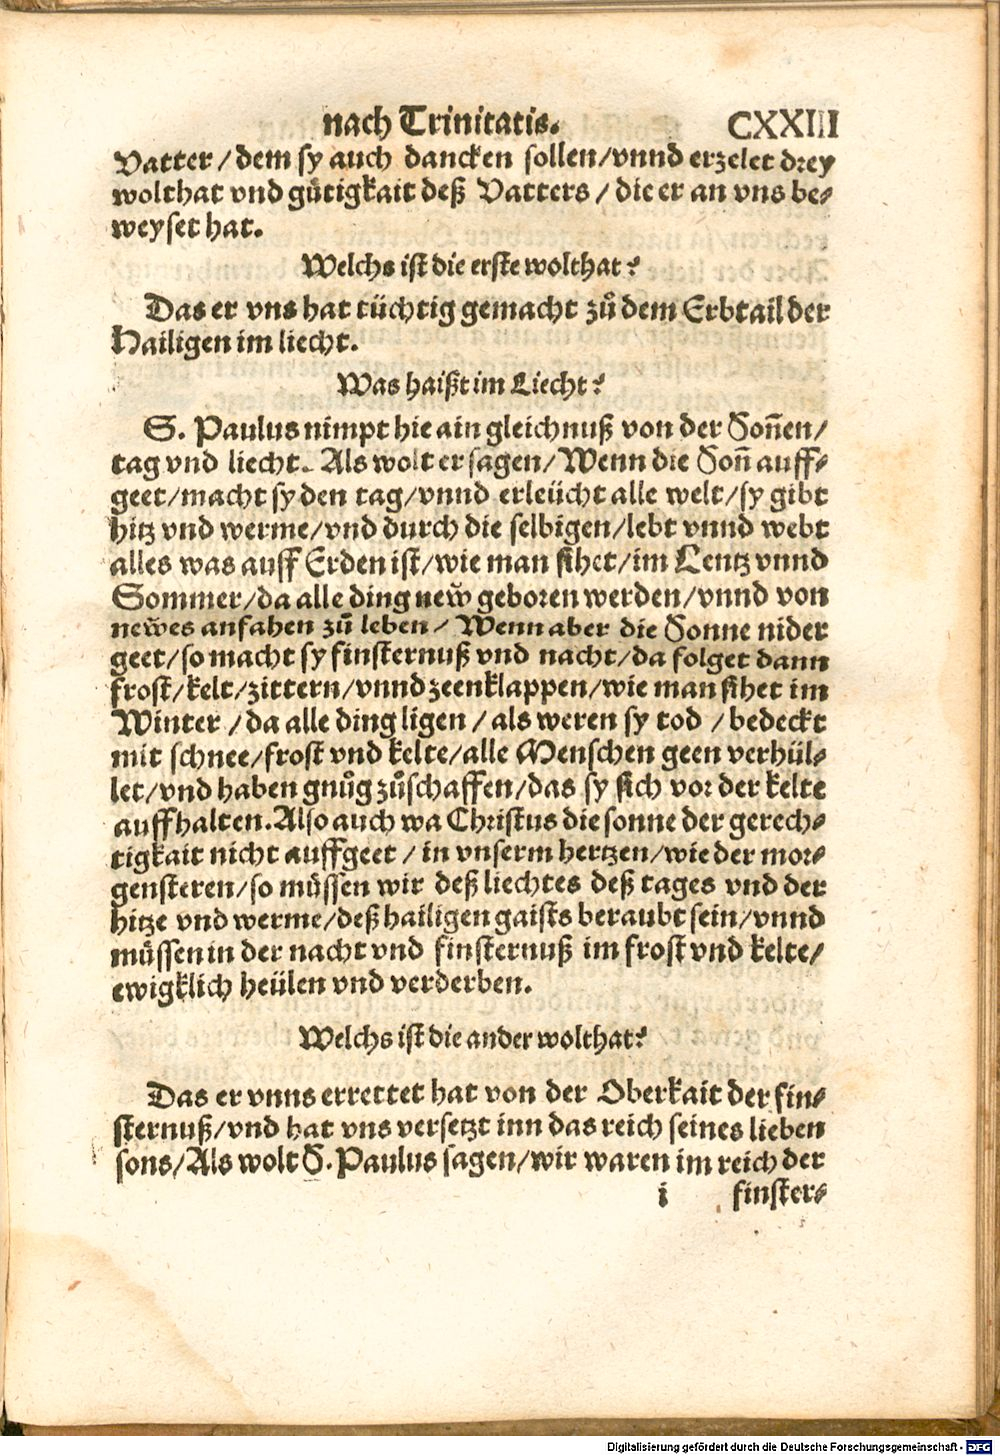 nach Trinitatis. CXXIII
Vatter / dem sy auch dancken sollen/vnnd erzelet drey
wolthat vnd guͤtigkait deß Vatters / die er an vns be⸗
weyset hat.
Welchs ist die erste wolthat?
Das er vns hat tüchtig gemacht zuͦ dem Erbtail der
Hailigen im liecht.
Was haißt im Liecht?
S. Paulus nimpt hie ain gleichnuß von der Son̄en/
tag vnd liecht. Als wolt er sagen/ Wenn die Son̄ auff⸗
geet/macht sy den tag/vnnd erleücht alle welt/sy gibt
hitz vnd werme/vnd durch die selbigen/lebt vnnd webt
alles was auff Erden ist/wie man sihet/im Lentz vnnd
Sommer/da alle ding new̆ geboren werden/vnnd von
new̆es anfahen zuͦ leben/ Wenn aber die Sonne nider
geet/so macht sy finsternuß vnd nacht/da folget dann
frost/kelt/zittern/vnnd zeenklappen/wie man sihet im
Winter /da alle ding ligen / als weren sy tod / bedeckt
mit schnee/frost vnd kelte/alle Menschen geen verhül⸗
let/vnd haben gnuͦg zuͦschaffen/das sy sich vor der kelte
auffhalten. Also auch wa Christus die sonne der gerech⸗
tigkait nicht auffgeet / in vnserm hertzen/wie der mor⸗
gensteren/so muͤssen wir deß liechtes deß tages vnd der
hitze vnd werme/deß hailigen gaists beraubt sein/vnnd
muͤssen in der nacht vnd finsternuß im frost vnd kelte/
ewigklich heülen vnd verderben.
Welchs ist die ander wolthat?
Das er vnns errettet hat von der Oberkait der fin⸗
sternuß/vnd hat vns versetzt inn das reich seines lieben
sons/Als wolt S. Paulus sagen/wir waren im reich der
i finster⸗
Digitalisierung gefördert durch die Deutsche Forschungsgemeinschaft - DFG